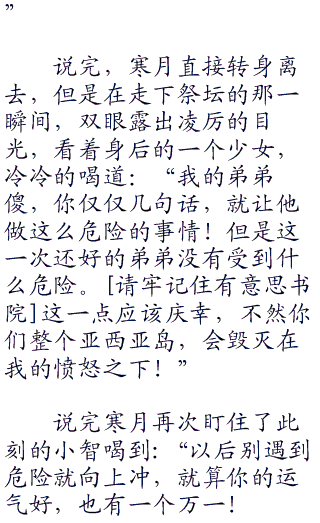 ”
说完，寒月直接转身离
去，但是在走下祭坛的那一
瞬间，双眼露出凌厉的目
光，看着身后的一个少女，
冷冷的喝道：“我的弟弟
傻，你仅仅几句话，就让他
做这么危险的事情！但是这
一次还好的弟弟没有受到什
么危险。[请牢记住有意思书
院]这一点应该庆幸，不然你
们整个亚西亚岛，会毁灭在
我的愤怒之下！”
说完寒月再次盯住了此
刻的小智喝到：“以后别遇到
危险就向上冲，就算你的运
气好，也有一个万一！